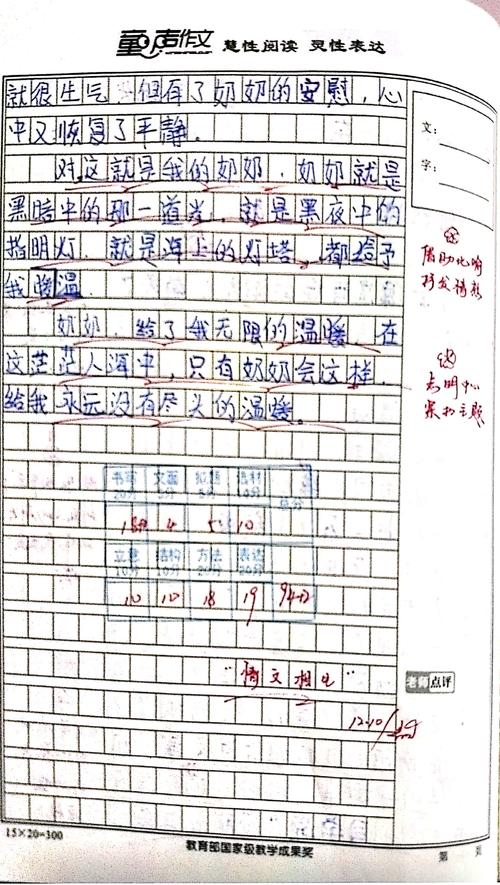 童声作文 慧性阅读 灵性表达
就很生气。但有了奶奶的安慰，心
中又恢复了平静。
对，这就是我的奶奶，奶奶就是
黑暗中的那一道光，就是黑夜中的
指明灯，就是海上的灯塔，都给予
我暖温。
奶奶，给了我无限的温暖，在
这茫茫人海中，只有奶奶会这样，
给我永远没有尽头的温暖。
文：
字：
借助比喻
抒发情感
点明中心
紧扣主题
书写 文面 拟题 选材 总分
20分 5分 5分 10分
4 5 10
立意 结构 方法 表达
10分 10分 20分 20分
10 10 18 19 94+2
"情文相生"
12.10
老师点评
15×20=300
教育部国家级教学成果奖
第 页